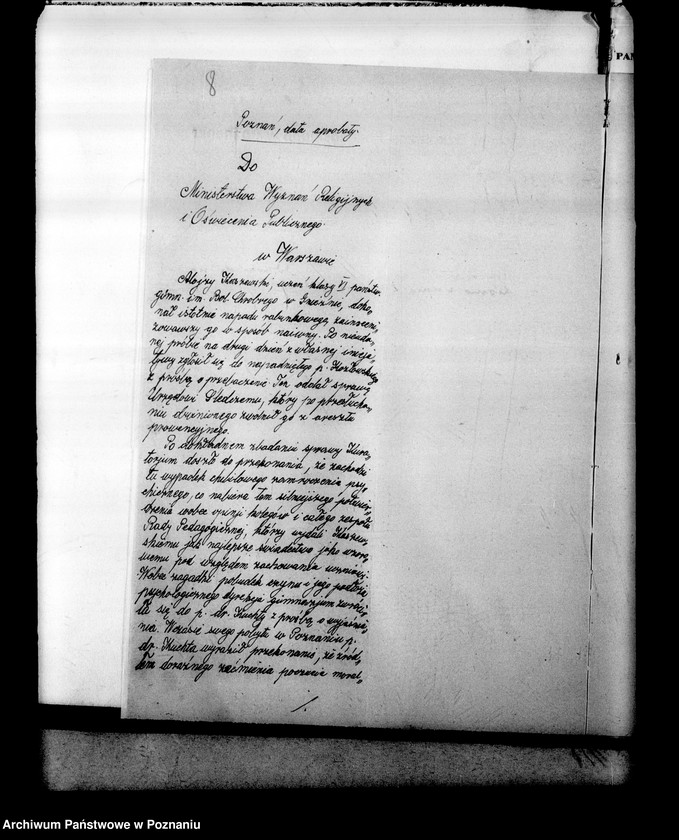 8
Poznań, data aprobaty.
Do
Ministerstwa Wyznań Religijnych
i Oświecenia Publicznego.
w Warszawie
Alojzy Kaszewski, uczeń klasy VI państw.
gimn. im. Bol. Chrobrego w Gnieźnie, doko„
nał istotnie napadu rabunkowego, zainsceni„
zowawszy go w sposób naiwny. Po nieuda„
nej próbie na drugi dzień z własnej inicja„
tywy zgłosił się do napadniętego p. Kozłowskiego
z prośbą o przebaczenie. Ten oddał sprawę
Urzędowi Śledczemu, który po przesłucha„
niu obwinionego zwolnił go z aresztu
prewencyjnego.
Po dokładnem zbadaniu sprawy Kura„
torjum doszło do przekonania, że zachodzi
tu wypadek chwilowego zamroczenia psy„
chicznego, co nabiera tem silniejszego potwier„
dzenia wobec opinji kolegów i całego zespołu
Rady Pedagogicznej, którzy wydali Kaszew„
skiemu jak najlepsze świadectwo jako wzoro„
wemu pod względem zachowania uczniowi.
Wobec zagadki pobudek czynu i jego podłoża
psychologicznego dyrekcja gimnazjum zwróci„
ła się do p. dr. Kuchty z prośbą o wyjaśnie„
nia. Wczasie swego pobytu w Poznaniu p.
dr. Kuchta wyraził przekonanie, że źród„
łem doraźnego zaćmienia poczucia moral„
./.
PAŃ
Archiwum Państwowe w Poznaniu